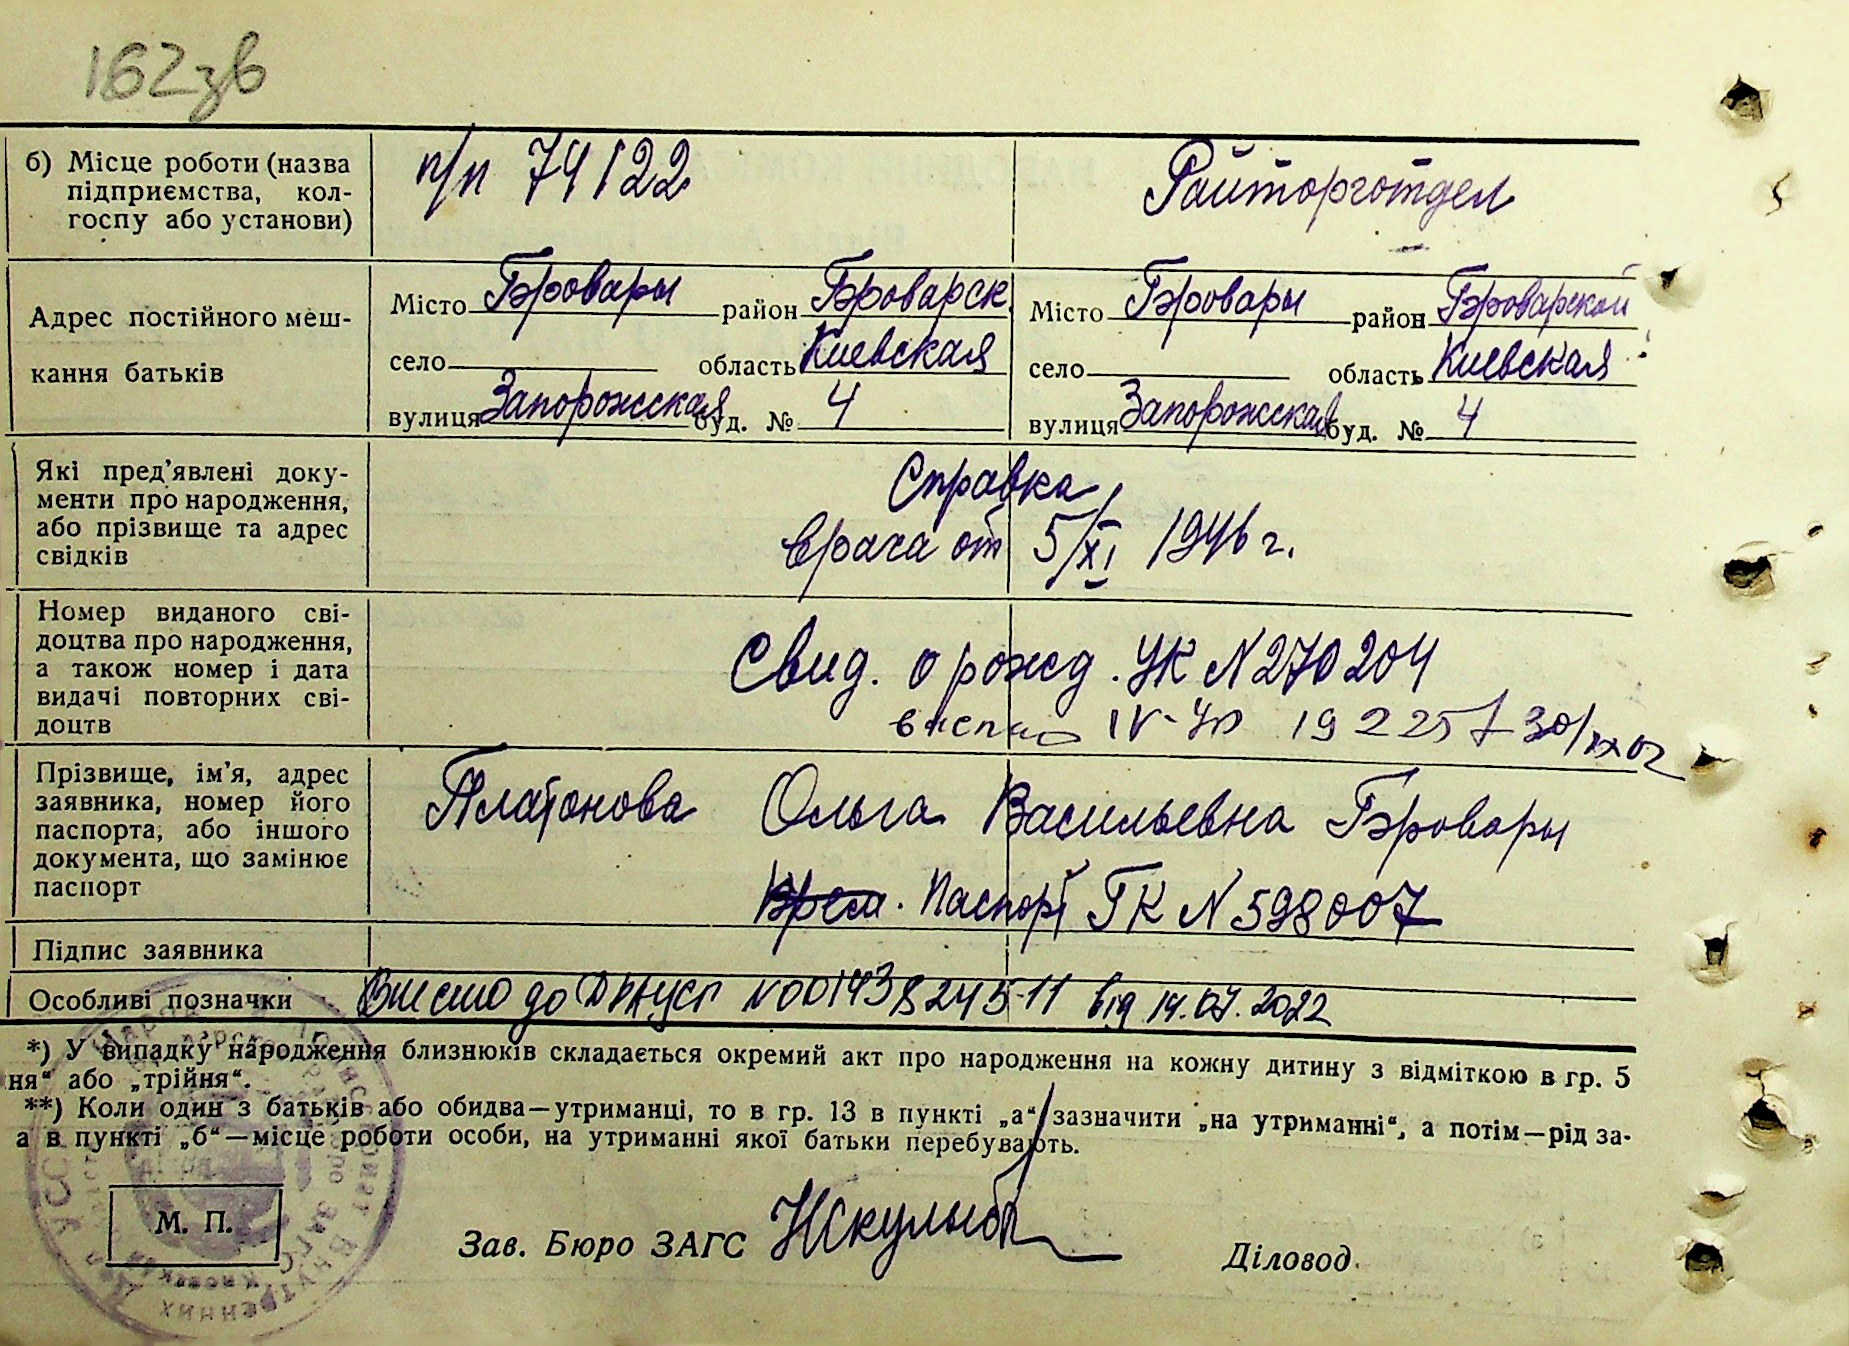 162зв
б) Місце роботи (назва п/п 74122 Райторготдел
підприємства, кол-
госпу або установи)
Місто Бровары район Броварск. Місто Бровары район Броварской
Адрес постійного меш-
кання батьків
село область Киевская село область Киевская
вулиця Запорожская буд. № 4 вулиця Запорожская буд. № 4
Які пред’явлені доку-
менти про народження,
або прізвище та адрес
свідків
Справка
врача от 5/XI 1946 г.
Номер виданого сві-
доцтва про народження,
а також номер і дата
видачі повторних сві-
доцтв
Свид. о рожд. УК N 270204
192257
Прізвище, ім’я, адрес
заявника, номер його
паспорта, або іншого
документа, що замінює
паспорт
Платонова Ольга Васильевна Бровары
Паспорт ГК N 598007
Підпис заявника
Особливі позначки Внесено до ДРАЦСГ N 00143824511 від 14.07.2022
*) У випадку народження близнюків складається окремий акт про народження на кожну дитину з відміткою в гр. 5
ня“ або „трійня“.
**) Коли один з батьків або обидва—утриманці, то в гр. 13 в пункті „а“ зазначити „на утриманні“, а потім—рід за-
а в пункті „б“—місце роботи особи, на утриманні якої батьки перебувають.
М. П.
Зав. Бюро ЗАГС
Діловод